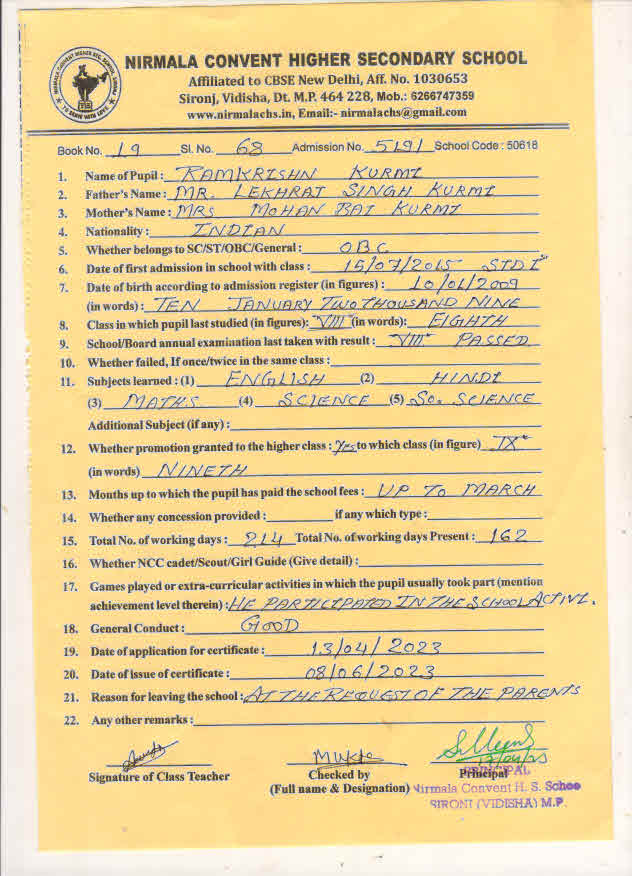 NIRMALA CONVENT HIGHER SECONDARY SCHOOL
Affiliated to CBSE New Delhi, Aff. No. 1030653
Sironj, Vidisha, Dt. M.P. 464 228, Mob.: 6266747359
www.nirmalachs.in, Email:- nirmalachs@gmail.com
Book No. 19 Sl. No. 68 Admission No. 5191 School Code : 50618
1. Name of Pupil : RAMKRISHN KURMI
2. Father's Name : MR. LEKHRAJ SINGH KURMI
3. Mother's Name : MRS MOHAN BAI KURMI
4. Nationality : INDIAN
5. Whether belongs to SC/ST/OBC/General : OBC
6. Date of first admission in school with class : 15/07/2015 STD I st
7. Date of birth according to admission register (in figures) : 10/01/2009
(in words) : TEN JANUARY TWO THOUSAND NINE
8. Class in which pupil last studied (in figures): VIII th (in words): EIGHTH
9. School/Board annual examination last taken with result : VIII th PASSED
10. Whether failed, If once/twice in the same class :
11. Subjects learned : (1) ENGLISH (2) HINDI
(3) MATHS (4) SCIENCE (5) SO. SCIENCE
Additional Subject (if any) :
12. Whether promotion granted to the higher class : Yes to which class (in figure) IX th
(in words) NINETH
13. Months up to which the pupil has paid the school fees : UP TO MARCH
14. Whether any concession provided : if any which type :
15. Total No. of working days : 214 Total No. of working days Present : 162
16. Whether NCC cadet/Scout/Girl Guide (Give detail) :
17. Games played or extra-curricular activities in which the pupil usually took part (mention
achievement level therein) : HE PARTICIPATED IN THE SCHOOL ACTIVI.
18. General Conduct : GOOD
19. Date of application for certificate : 13/04/2023
20. Date of issue of certificate : 08/06/2023
21. Reason for leaving the school : AT THE REQUEST OF THE PARENTS
22. Any other remarks :
Signature of Class Teacher Checked by Principal
(Full name & Designation)
PRINCIPAL
Nirmala Convent H. S. Schoo
SIRONJ (VIDISHA) M.P.